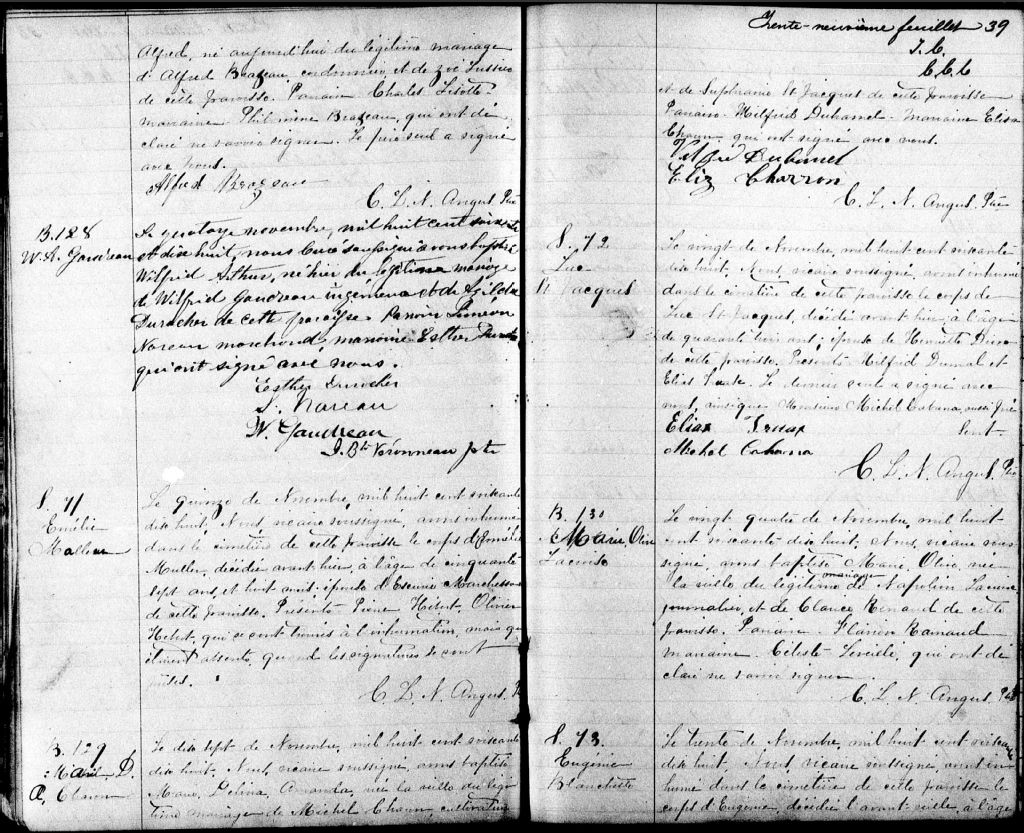 Alfred, né aujourd'hui du légitime mariage
d'Alfred Brazeau, cordonnier, et de Zoé Lussier
de cette paroisse. Parrain Charles Lisotte
marraine Philomine Brazeau, qui ont dé
claré ne savoir signer. Le père seul a signé
avec nous.
Alfred Brazeau
C. L. N. Angus, Ptre
B. 128
W. A. Gaudreau
Le quatorze novembre, mil huit cent soixante
et dix huit, nous Curé soussigné avons baptisé
Wilfrid Arthur, né hier du légitime mariage
de Wilfrid Gaudreau ingénieur et de
Durocher de cette paroisse Parrain Siméon
Nareau marchand, marraine Esther Durocher
qui ont signé avec nous.
Esther Durocher
S. Nareau
W. Gaudreau
J. Bte Véronneau ptre
S. 71
Emélie
Le quinze de Novembre, mil huit cent soixante
dix huit. Nous, vicaire soussigné, avons inhumé
dans le cimetière de cette paroisse le corps d'Emélie
Muller, décédée avant hier, à l'âge de cinquante
sept ans, et huit mois, épouse d'Eusèbe Marchesseau
de cette paroisse. Présents Pierre Hébert, Olivier
Hébert, qui se sont trouvés à l'inhumation, mais qui
étaient absents, quand les signatures se sont
faites.
C. L. N. Angus, P
B. 129
Marie D.
A. Charron
Le dix sept de Novembre, mil huit cent soixante
dix huit. Nous, vicaire soussigné, avons baptisé
Marie, Delina, Amanda, née la veille du légi
time mariage de Michel Charron, cultivateur
Trente-neuvième feuillet 39
et de Suphranie St Jacques de cette paroisse
Parrain Wilfrid Duhamel marraine Eliza
Charron qui ont signé avec nous.
Duhamel
Eliz Charron
C. L. N. Angus, Ptre
S. 72
Luc
St Jacques
Le vingt de Novembre, mil huit cent soixante
dix huit. Nous, vicaire soussigné, avons inhumé
dans le cimetière de cette paroisse le corps de
Luc St Jacques, décédé avant hier, à l'âge
de quarante trois ans, époux de Henriette
de cette paroisse. Présents Wilfrid et
Elias. Le dernier seul a signé avec
nous, ainsi que Monsieur Michel Cabana, aussi pré
sent.
Elias
Michel Cabana
C. L. N. Angus, Ptre
B. 130
Marie, Olive
Le vingt quatre de Novembre, mil huit
cent soixante dix huit. Nous, vicaire sous
signé, avons baptisé Marie, Olive, née
la veille du légitime mariage de Napoléon
journalier, et de Clarice Renaud de cette
paroisse. Parrain Flavien Renaud
marraine Céleste Léveillé, qui ont dé
claré ne savoir signer.
C. L. N. Angus, Ptre
S. 73.
Eugénie
Blanchette
Le trente de Novembre, mil huit cent soixante
dix huit. Nous, vicaire soussigné, avons in
humé dans le cimetière de cette paroisse le
corps d'Eugénie, décédée l'avant veille, à l'âge